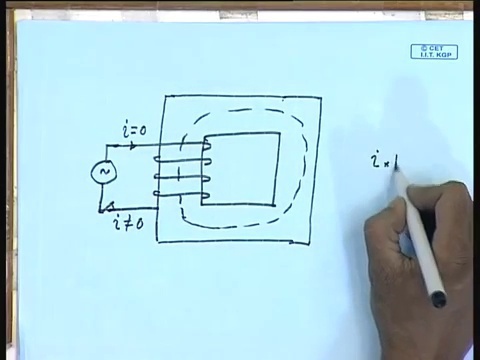 © CET
I.I.T. KGP
i=0
~
i≠0
i×